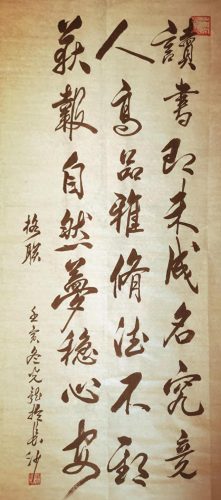 讀書即未成名究竟
人高品雅脩德不期
获報自然夢穩心安
格联
壬寅冬
长沙